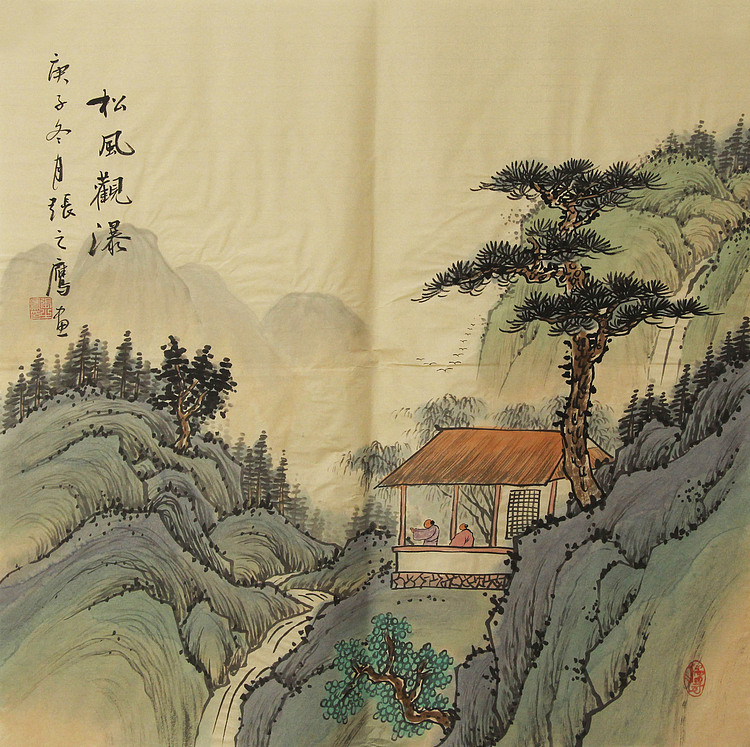 松風觀瀑
庚子冬月張之鷹画